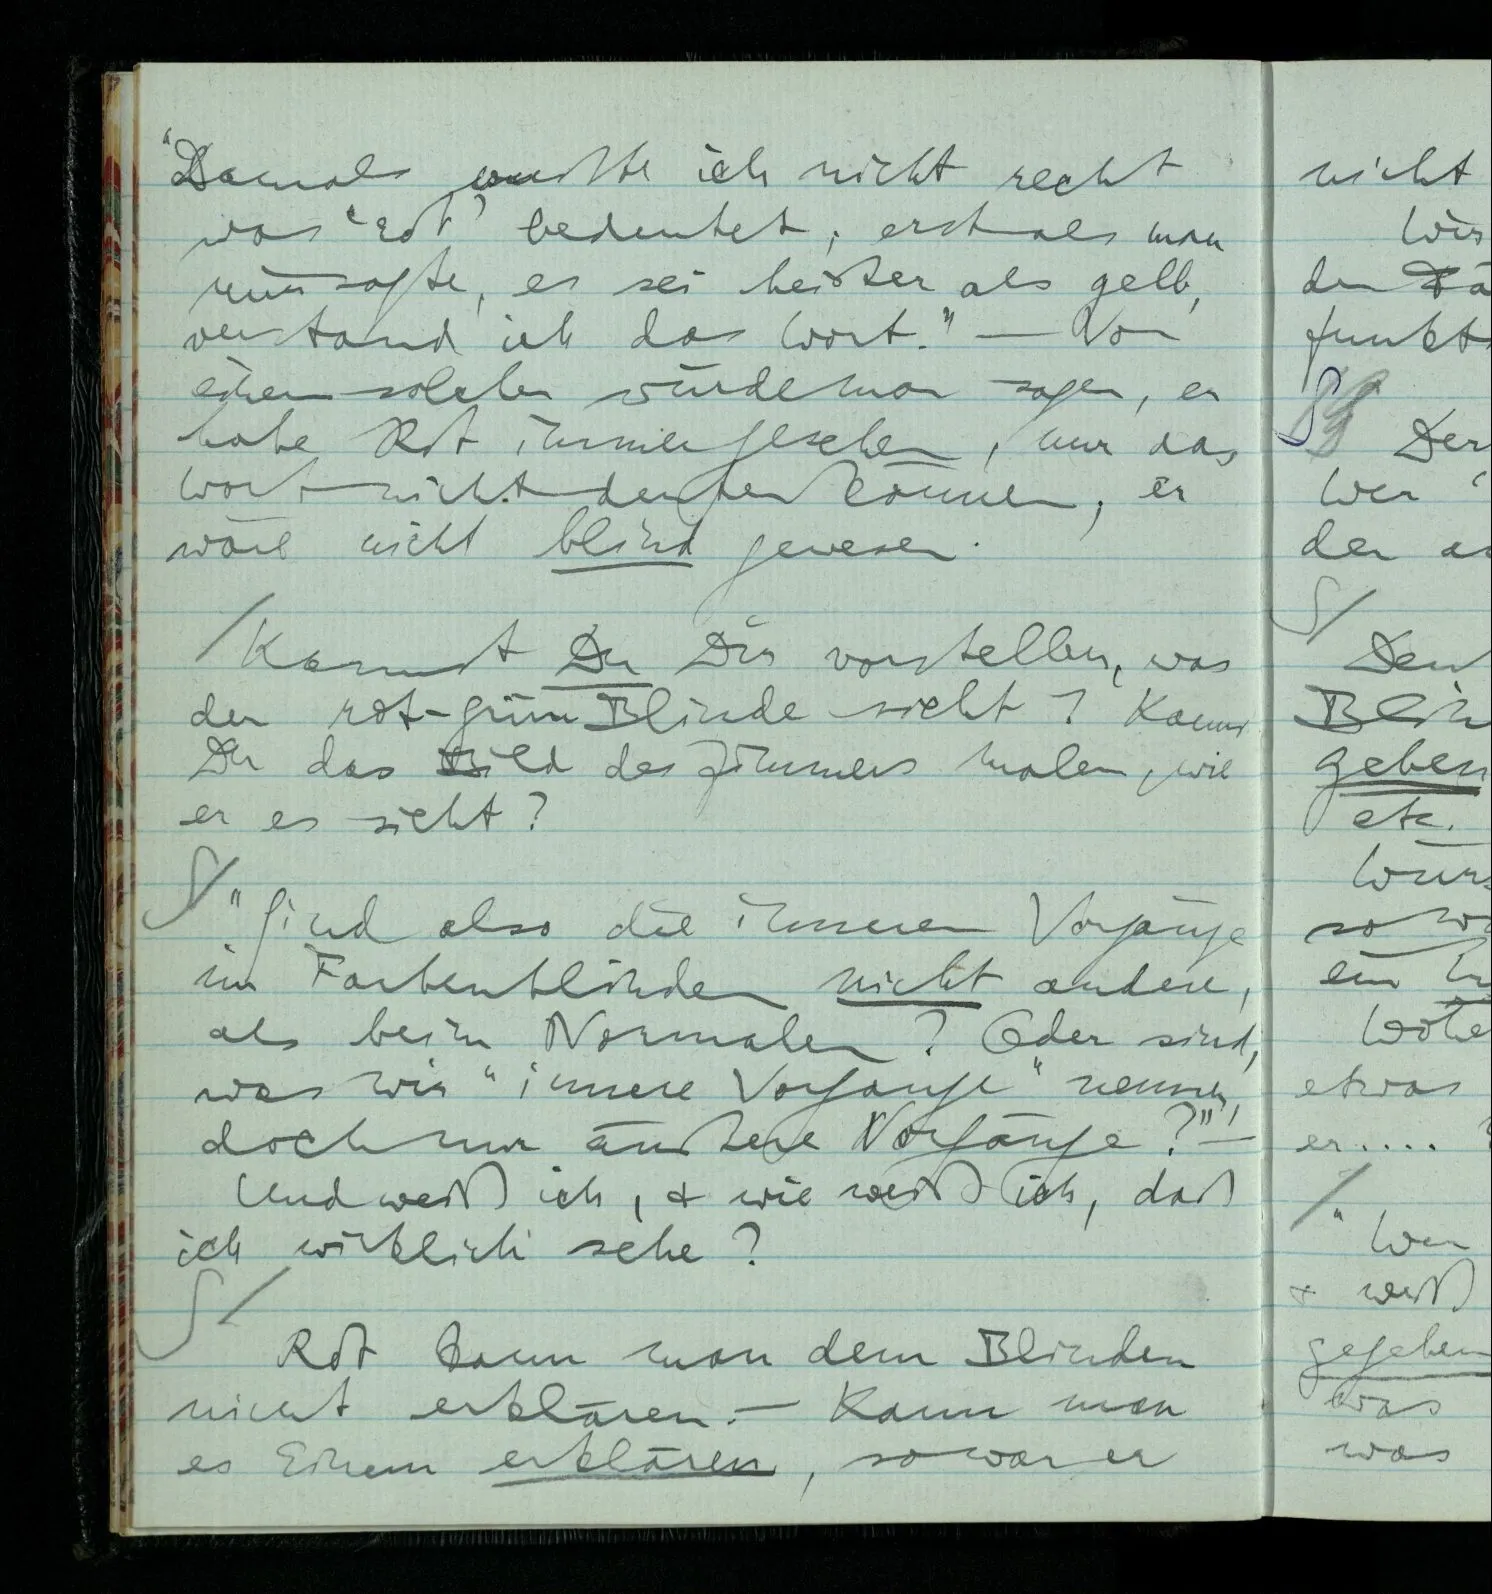 "Damals wußte ich nicht recht
was 'rot' bedeutet; erst als man
mir sagte, es sei heißer als gelb,
verstand ich das Wort." — Von
einem solchen würde man sagen, er
habe Rot immer gesehen, nur das
Wort nicht deuten können; er
wäre nicht blind gewesen.
/ Kannst Du Dir vorstellen, was
der rot-grün Blinde sieht? Kannst
Du das Bild des Zimmers malen, wie
er es sieht?
S/ "Sind also die inneren Vorgänge
im Farbenblinden nicht andere,
als beim Normalen? Oder sind,
was wir "innere Vorgänge" nennen,
doch nur äußere Vorgänge?" —
Und weiß ich, & wie weiß ich, daß
ich wirklich sehe?
S/
Rot kann man dem Blinden
nicht erklären. — Kann man
es Einem erklären, so war er
nicht
Wir
den
funkt
Der
Wer
den
S/
Den
Blin
geben
etc.
Würd
so
ein
etwas
er....
/
"Wer
& weiß
gegeben
was
was